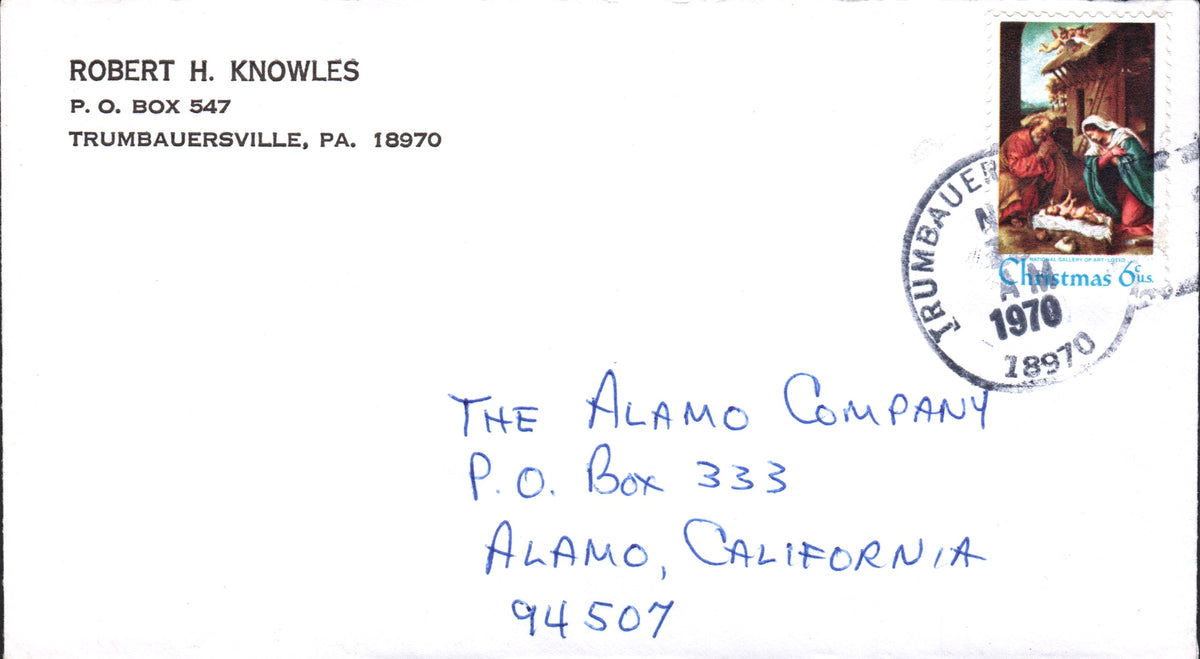 ROBERT H. KNOWLES
P. O. BOX 547
TRUMBAUERSVILLE, PA. 18970
NATIONAL GALLERY OF ART · LOTTO
Christmas 6c U.S.
TRUMBAUER
AM
1970
18970
THE ALAMO COMPANY
P. O. BOX 333
ALAMO, CALIFORNIA
94507